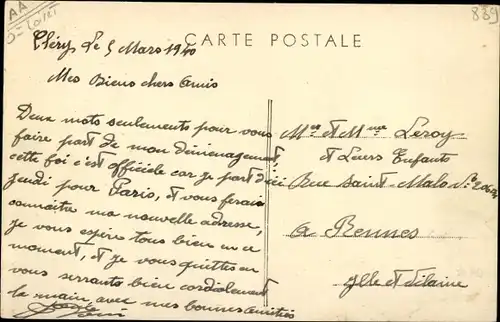 AA
889
CARTE POSTALE
Cléry Le 5 Mars 1940
Mes Biens chers Amis
Deux mots seulements pour vous
faire part de mon déménagement,
cette foi c'est officiele car je part d'ici
jeudi pour Paris, et vous ferais
connaitre ma nouvelle adresse,
je vous espère tous bien en ce
moment, et je vous quittes en
vous serrants bien cordialement
la main, avec mes bonnes amitiés
Mr et Mme Leroy
et Leurs Enfants
Rue Saint-Malo No
a Rennes
Ille et Vilaine